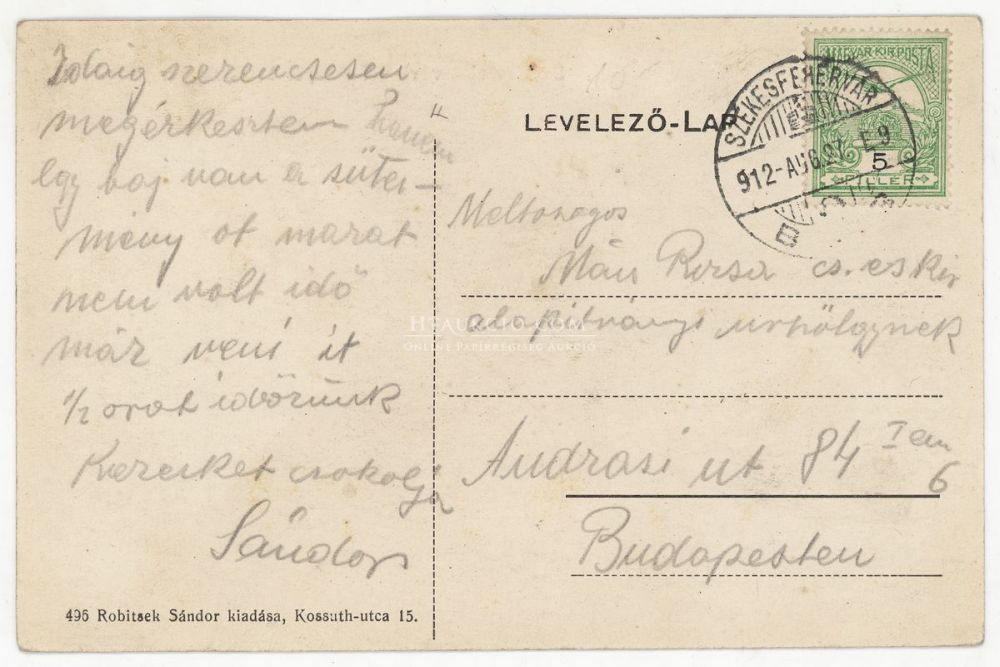 Idaig szerencsesen
megérkeztem Hanem
Egy baj van a sütemény
ot marat
nem volt idő
már veni it
1/2 orat időzünk
Kezeiket csokolja
Sándor
496 Robitsek Sándor kiadása, Kossuth-utca 15.
LEVELEZŐ-LAP
MAGYAR KIR. POSTA
5
FILLÉR
SZÉKESFEHÉRVÁR
912-AUG. 27 - E 9
Meltosagos
Rozsa cs. es kir
alapítványi urhölgynek
Andrasi ut 84 I em
6
Budapesten
HTAUKCIO.COM
ONLINE PAPÍRRÉGISÉG AUKCIÓ